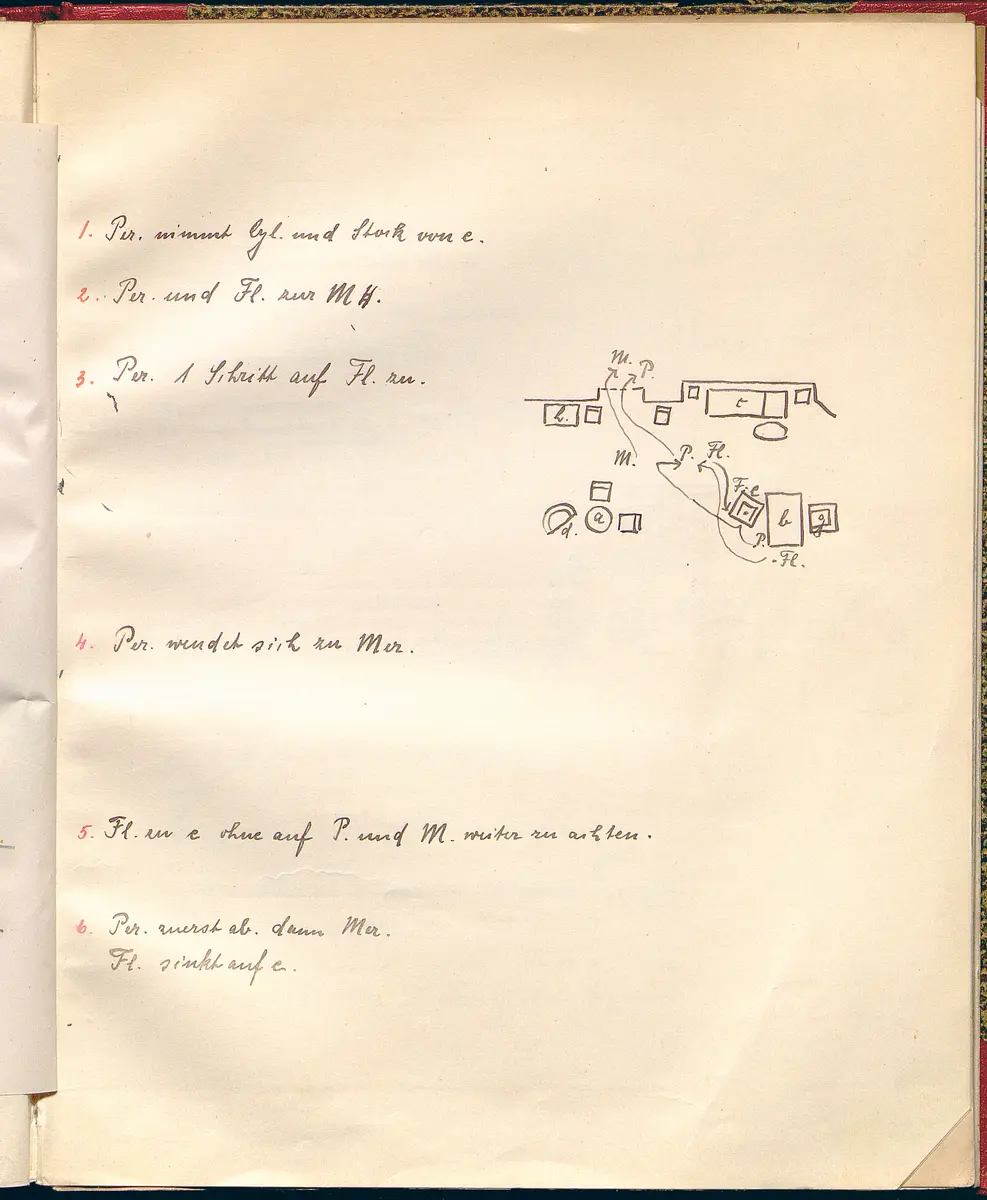 1. Per. nimmt Cyl. und Stock von e.
2. Per. und Fl. zur M H.
3. Per. 1 Schritt auf Fl. zu.
M. P.
h. c
M. P. Fl.
F. e
d. a b g
P.
Fl.
4. Per. wendet sich zu Mer.
5. Fl. zu e ohne auf P. und M. weiter zu achten.
6. Per. zuerst ab. dann Mer.
Fl. sinkt auf e.